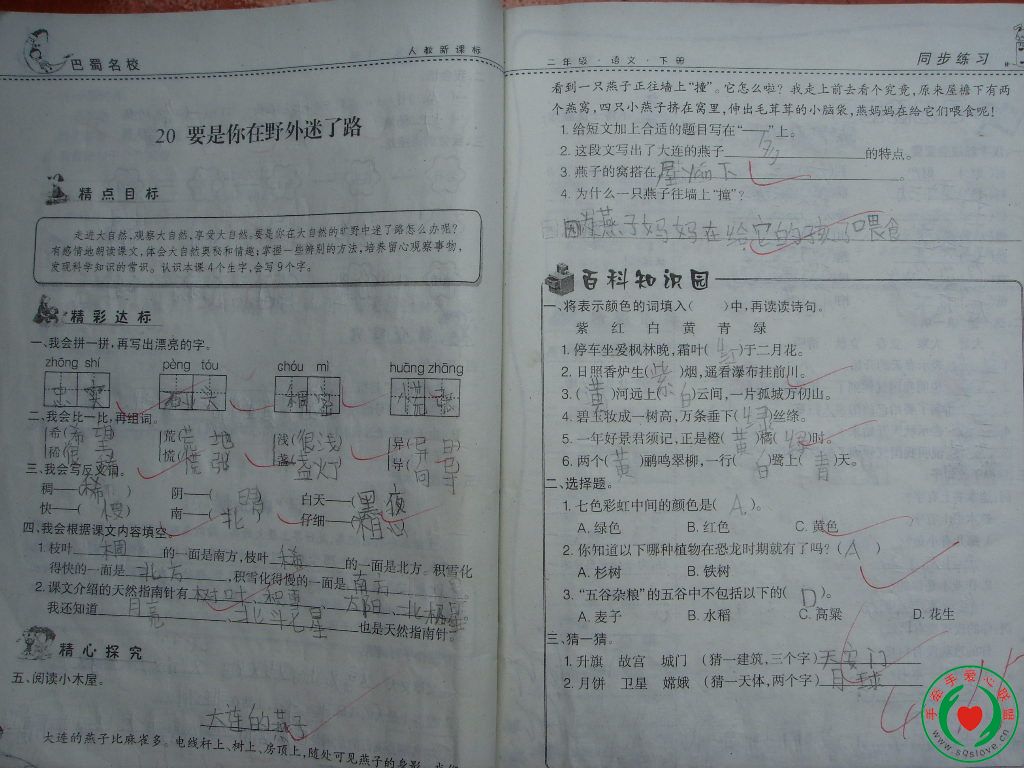 巴蜀名校
人教新课标
20 要是你在野外迷了路
精点目标
走进大自然,观察大自然,享受大自然,要是你在大自然的旷野中迷了路怎么办呢?
有感情地朗读课文,体会大自然奥秘和情趣;掌握一些辨别的方法,培养留心观察事物,
发现科学知识的常识。认识本课4个生字,会写9个字。
精彩达标
一、我会拼一拼,再写出漂亮的字。
zhōng shí pèng tóu chóu mì huāng zhāng
忠实 碰头 稠密 慌张
二、我会比一比,再组词。
希(希望) 荒(荒地) 浅(很浅) 异(异日)
稀( ) 慌(慌张) 盏(盏灯) 导(向导)
三、我会写反义词。
稠——(稀) 阴——(晴) 白天——(黑夜)
快——(慢) 南——(北) 仔细——(粗心)
四、我会根据课文内容填空。
1. 枝叶 稠 的一面是南方,枝叶 稀 的一面是北方。积雪化
得快的一面是 北方 ,积雪化得慢的一面是 南方
2. 课文介绍的天然指南针有 树叶 、积雪 、太阳 、北极星
我还知道 月亮 、北斗星 也是天然指南针。
精心探究
五、阅读小木屋。
大连的燕子
大连的燕子比麻雀多。电线杆上、树上、房顶上,随处可见燕子的身影。
二年级·语文·下册
同步练习
看到一只燕子正往墙上“撞”。它怎么啦?我走上前去看个究竟,原来屋檐下有两
个燕窝,四只小燕子挤在窝里,伸出毛茸茸的小脑袋,燕妈妈在给它们喂食呢!
1. 给短文加上合适的题目写在“——”上。
2. 这段文写出了大连的燕子 多 的特点。
3. 燕子的窝搭在 屋 下 。
4. 为什么一只燕子往墙上“撞”?
因 燕子妈妈在给它的孩 喂食
百科知识园
一、将表示颜色的词填入( )中,再读读诗句。
紫 红 白 黄 青 绿
1. 停车坐爱枫林晚,霜叶(红)于二月花。
2. 日照香炉生(紫)烟,遥看瀑布挂前川。
3. (黄)河远上(白)云间,一片孤城万仞山。
4. 碧玉妆成一树高,万条垂下(绿)丝绦。
5. 一年好景君须记,正是橙(黄)橘(绿)时。
6. 两个(黄)鹂鸣翠柳,一行(白)鹭上(青)天。
二、选择题。
1. 七色彩虹中间的颜色是( A )。
A. 绿色 B. 红色 C. 黄色
2. 你知道以下哪种植物在恐龙时期就有了吗?( A )
A. 杉树 B. 铁树
3. “五谷杂粮”的五谷中不包括以下的( D )。
A. 麦子 B. 水稻 C. 高粱 D. 花生
三、猜一猜。
1. 升旗 故宫 城门 (猜一建筑,三个字) 天安门
2. 月饼 卫星 嫦娥 (猜一天体,两个字) 月球
手牵手爱心联盟
www.sqslove.cn